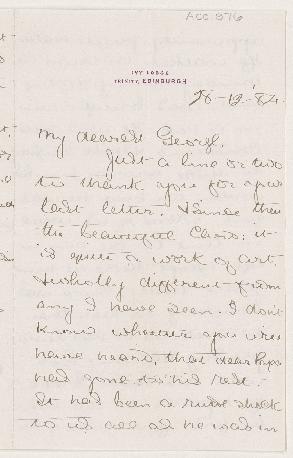 ACC. 976
IVY LODGE
TRINITY, EDINBURGH
28-12-'84.
My dearest George,
Just a line or two
to thank you for your
last letter. & since then
the beautiful Card: it
is quite a work of art.
& wholly different from
any I have seen. I don't
know whether you will
have heard, that dear Papa
had gone to his rest.
It had been a rude shock
to us all as he was in